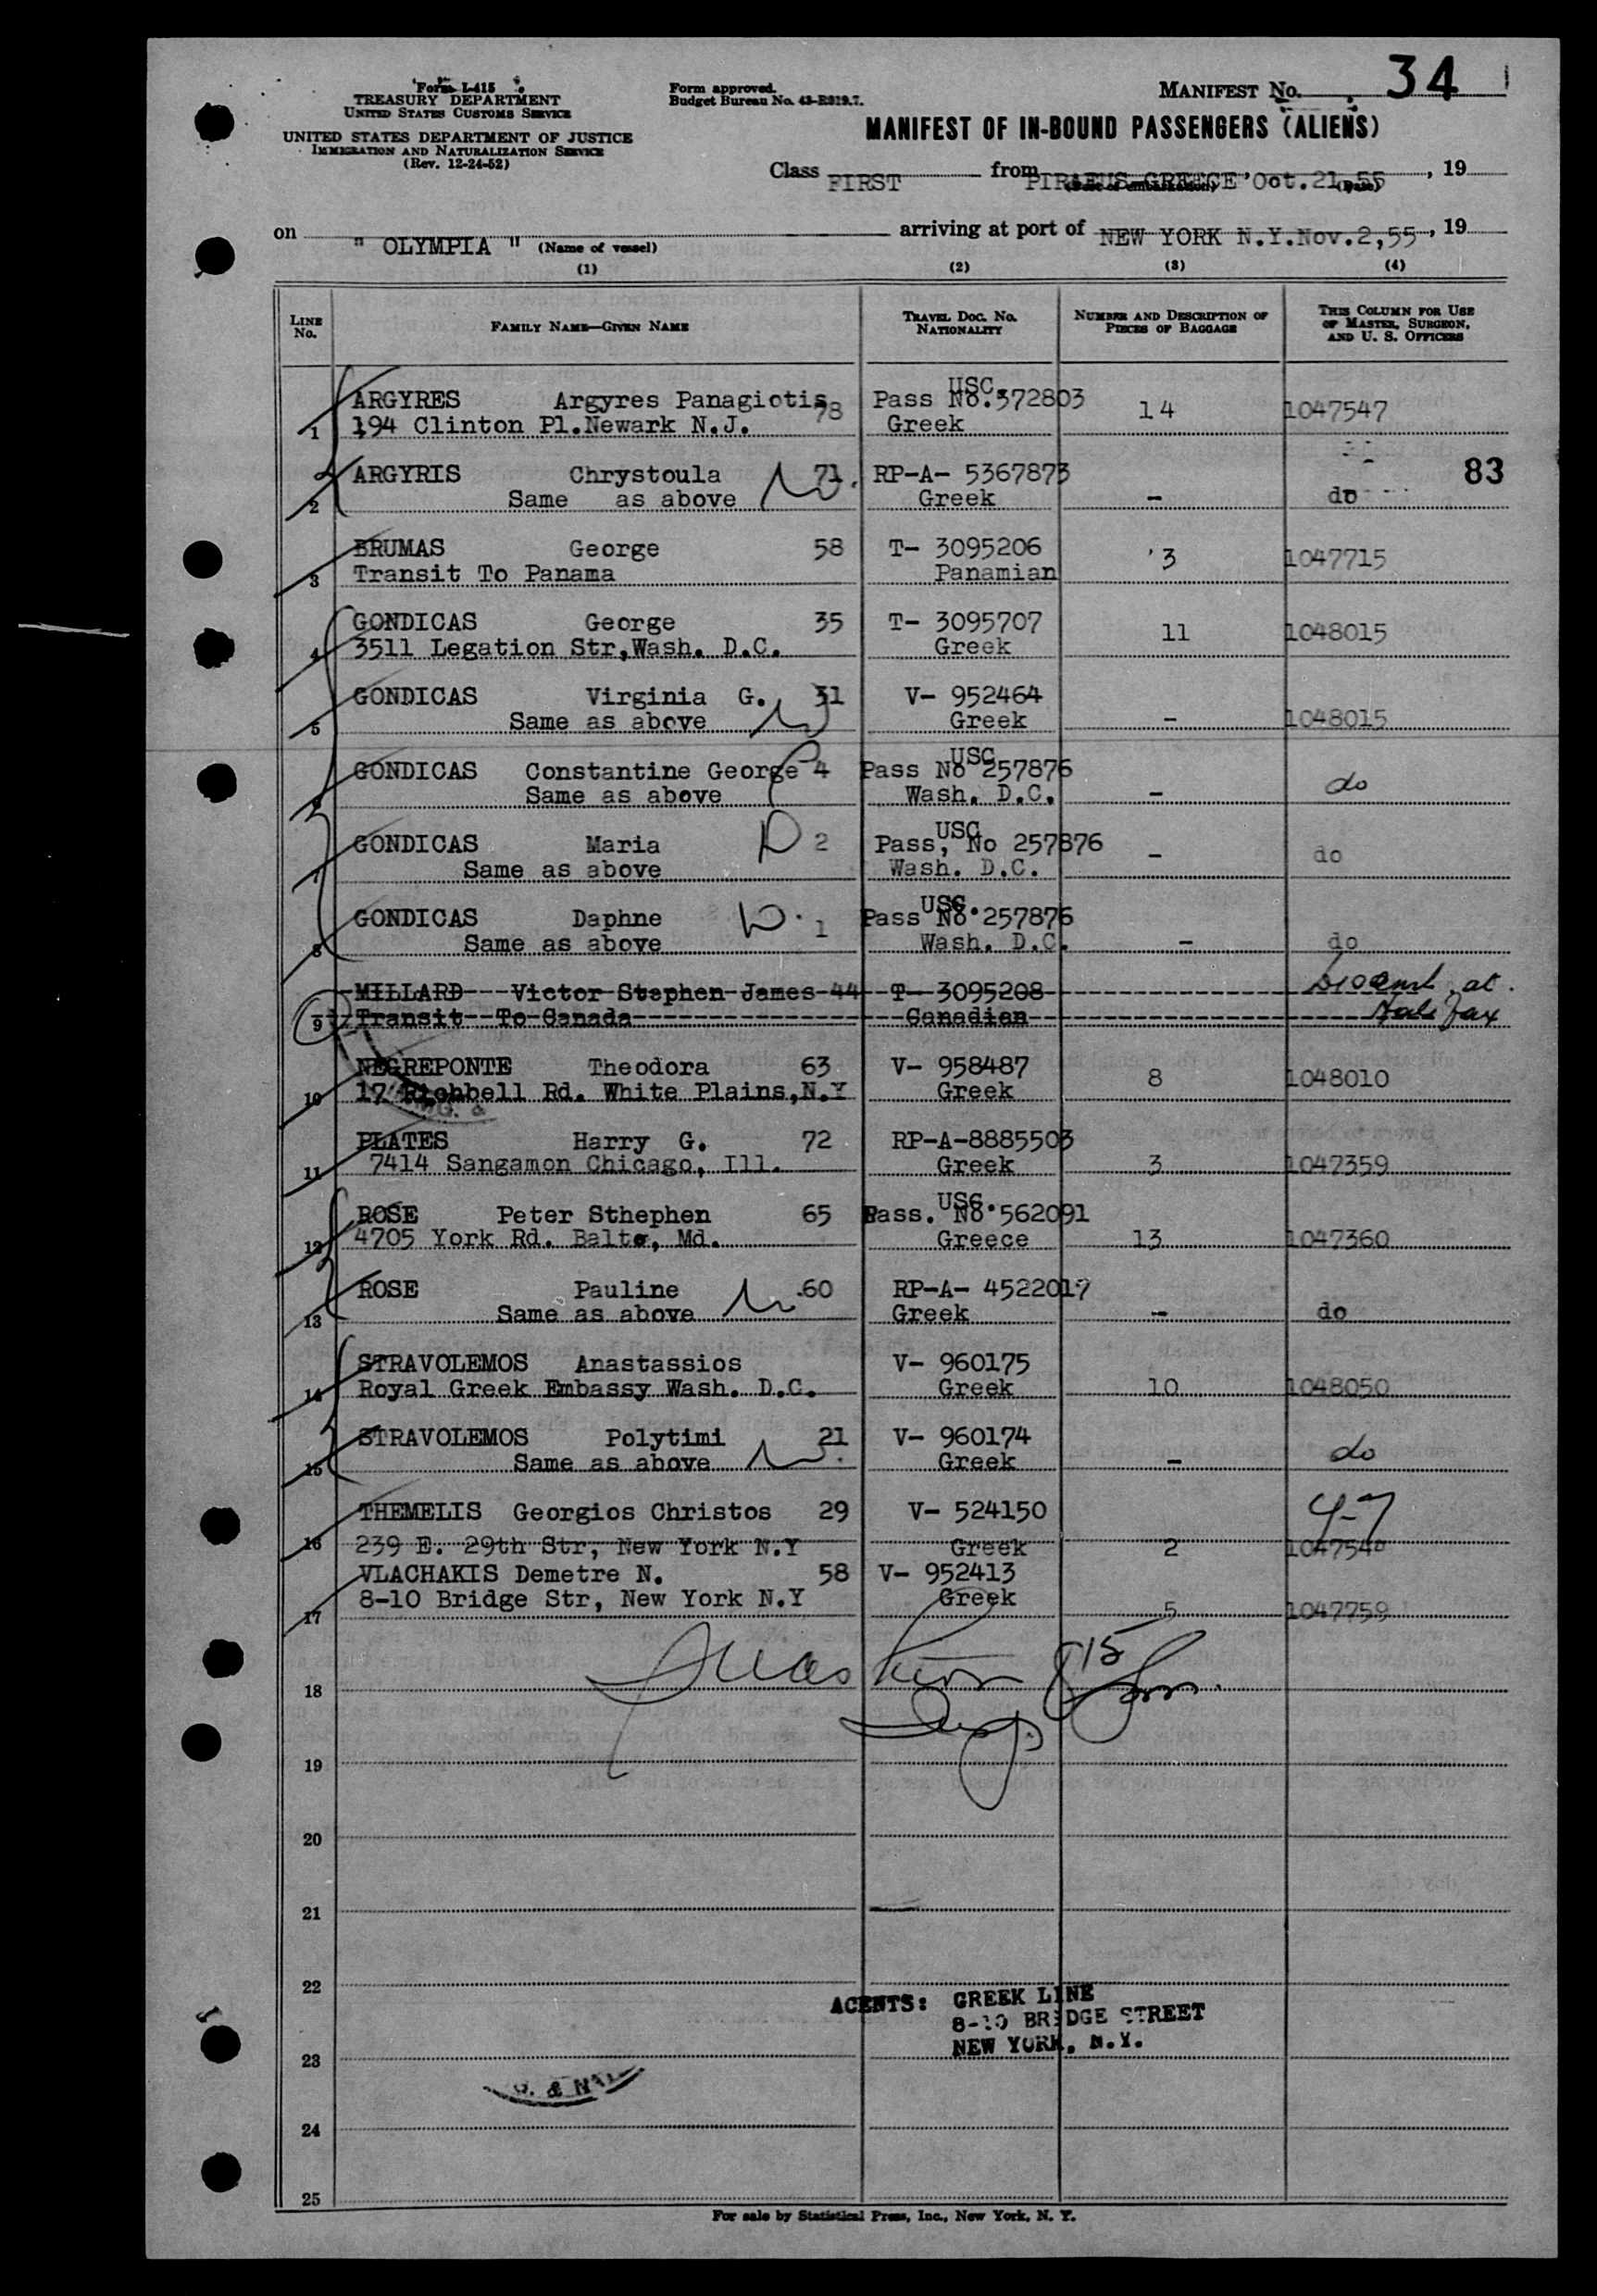 Form I-415
TREASURY DEPARTMENT
UNITED STATES CUSTOMS SERVICE
UNITED STATES DEPARTMENT OF JUSTICE
IMMIGRATION AND NATURALIZATION SERVICE
(Rev. 12-24-52)
Form approved.
Budget Bureau No. 43-R319.7.
MANIFEST No. 34
MANIFEST OF IN-BOUND PASSENGERS (ALIENS)
Class FIRST from PIRAEUS GREECE Oct. 21, 55, 19
(Port of embarkation) (Date)
on " OLYMPIA " (Name of vessel) arriving at port of NEW YORK N.Y. Nov. 2, 55, 19
(1) (2) (3) (4)
LINE No. FAMILY NAME—GIVEN NAME TRAVEL DOC. No. NATIONALITY NUMBER AND DESCRIPTION OF PIECES OF BAGGAGE THIS COLUMN FOR USE OF MASTER, SURGEON, AND U. S. OFFICERS
ARGYRES Argyres Panagiotis 78 Pass USC. No. 372803 14 1047547
1 194 Clinton Pl. Newark N.J. Greek
83
ARGYRIS Chrystoula 71 RP-A- 5367873
2 Same as above Greek - do
BRUMAS George 58 T- 3095206 3 1047715
3 Transit To Panama Panamian
GONDICAS George 35 T- 3095707 11 1048015
4 3511 Legation Str, Wash. D.C. Greek
GONDICAS Virginia G. 31 V- 952464
5 Same as above Greek - 1048015
GONDICAS Constantine George 4 Pass USC No 257876 do
6 Same as above Wash. D.C. -
GONDICAS Maria 2 Pass, USC No 257876 - do
7 Same as above Wash. D.C.
GONDICAS Daphne 1 Pass USC. No. 257876
8 Same as above Wash. D.C. - do
MILLARD Victor Stephen James 44 T- 3095208 at
9 Transit To Canada Canadian Halifax
NEGREPONTE Theodora 63 V- 958487 8 1048010
10 17 Richbell Rd. White Plains, N.Y Greek
PLATES Harry G. 72 RP-A-8885503
11 7414 Sangamon Chicago, Ill. Greek 3 1047359
ROSE Peter Sthephen 65 Pass. USC. No. 562091
12 4705 York Rd. Balto, Md. Greece 13 1047360
ROSE Pauline 60 RP-A- 4522017
13 Same as above Greek - do
STRAVOLEMOS Anastassios V- 960175
14 Royal Greek Embassy Wash. D.C. Greek 10 1048050
STRAVOLEMOS Polytimi 21 V- 960174 do
15 Same as above Greek -
THEMELIS Georgios Christos 29 V- 524150 4-7
16 239 E. 29th Str, New York N.Y Greek 2 104754
VLACHAKIS Demetre N. 58 V- 952413
17 8-10 Bridge Str, New York N.Y Greek 5 1047759
18
19
20
21
22
AGENTS: GREEK LINE
8-10 BRIDGE STREET
NEW YORK, N.Y.
23
24
25
For sale by Statistical Press, Inc., New York, N. Y.